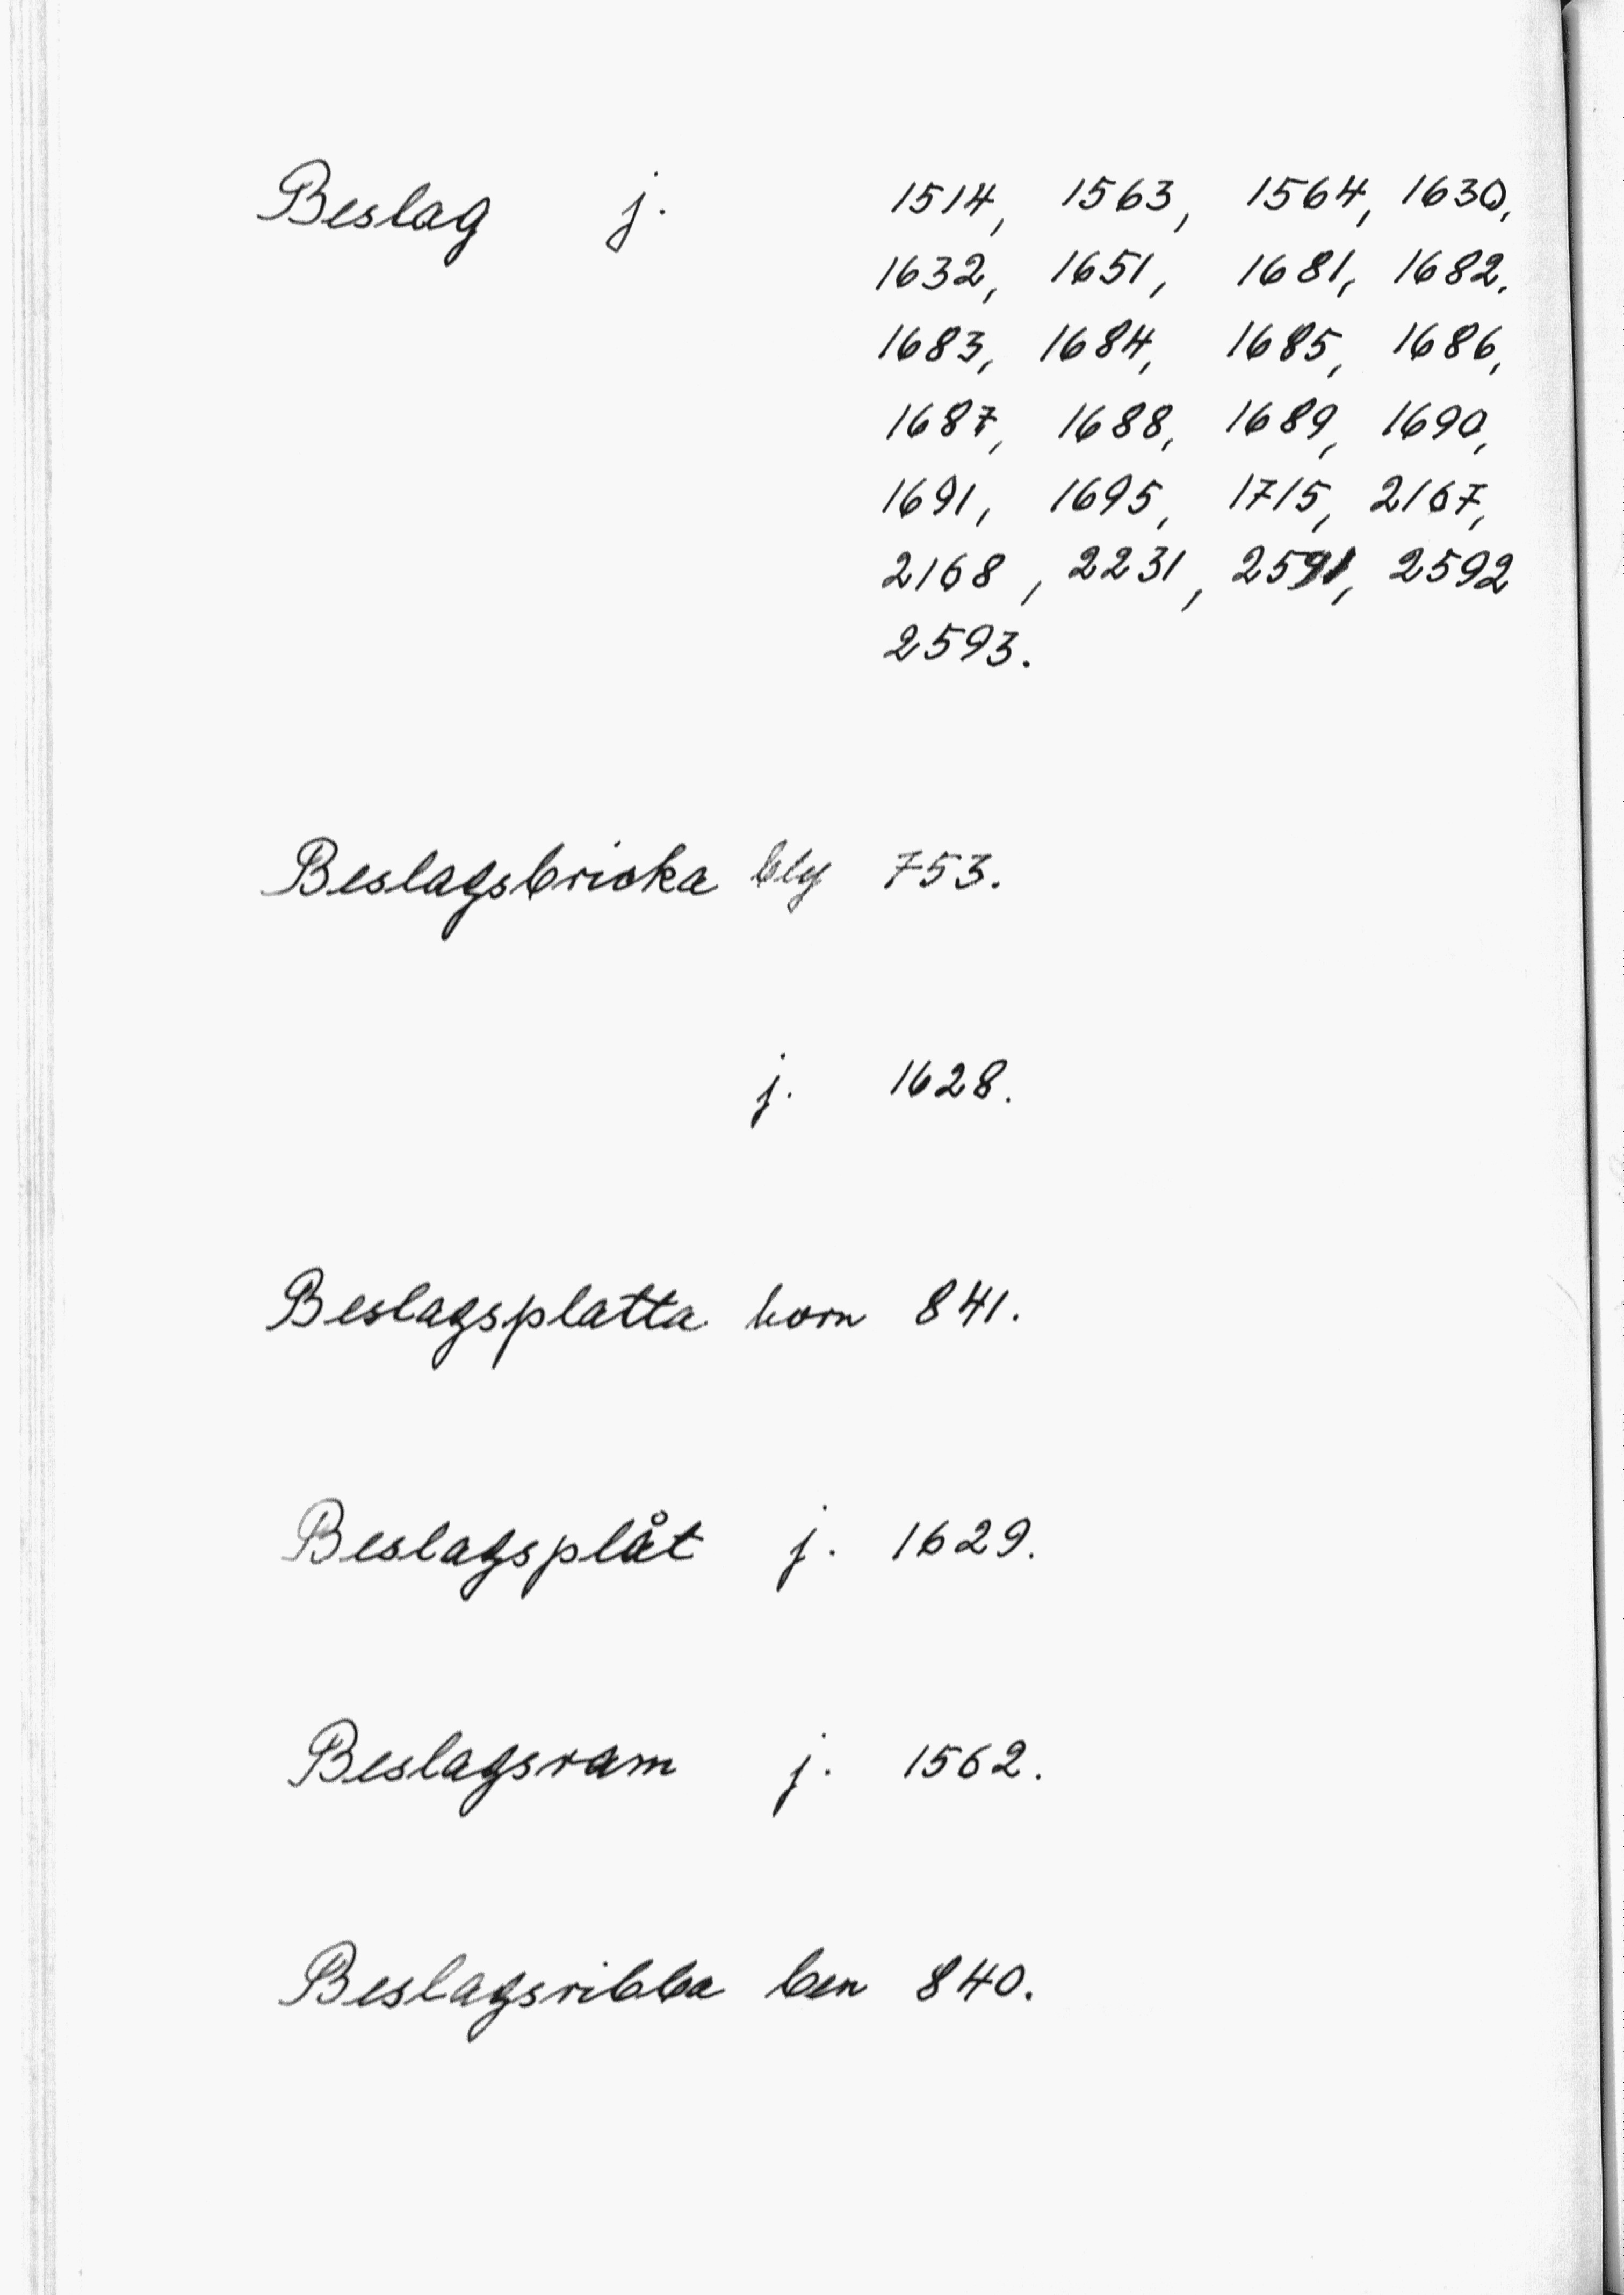 Beslag j. 1514, 1563, 1564, 1630,
1632, 1651, 1681, 1682,
1683, 1684, 1685, 1686,
1687, 1688, 1689, 1690,
1691, 1695, 1715, 2167,
2168, 2231, 2591, 2592
2593.
Beslagsbricka bly 753.
j. 1628.
Beslagsplatta horn 841.
Beslagsplåt j. 1629.
Beslagsram j. 1562.
Beslagsribba ben 840.